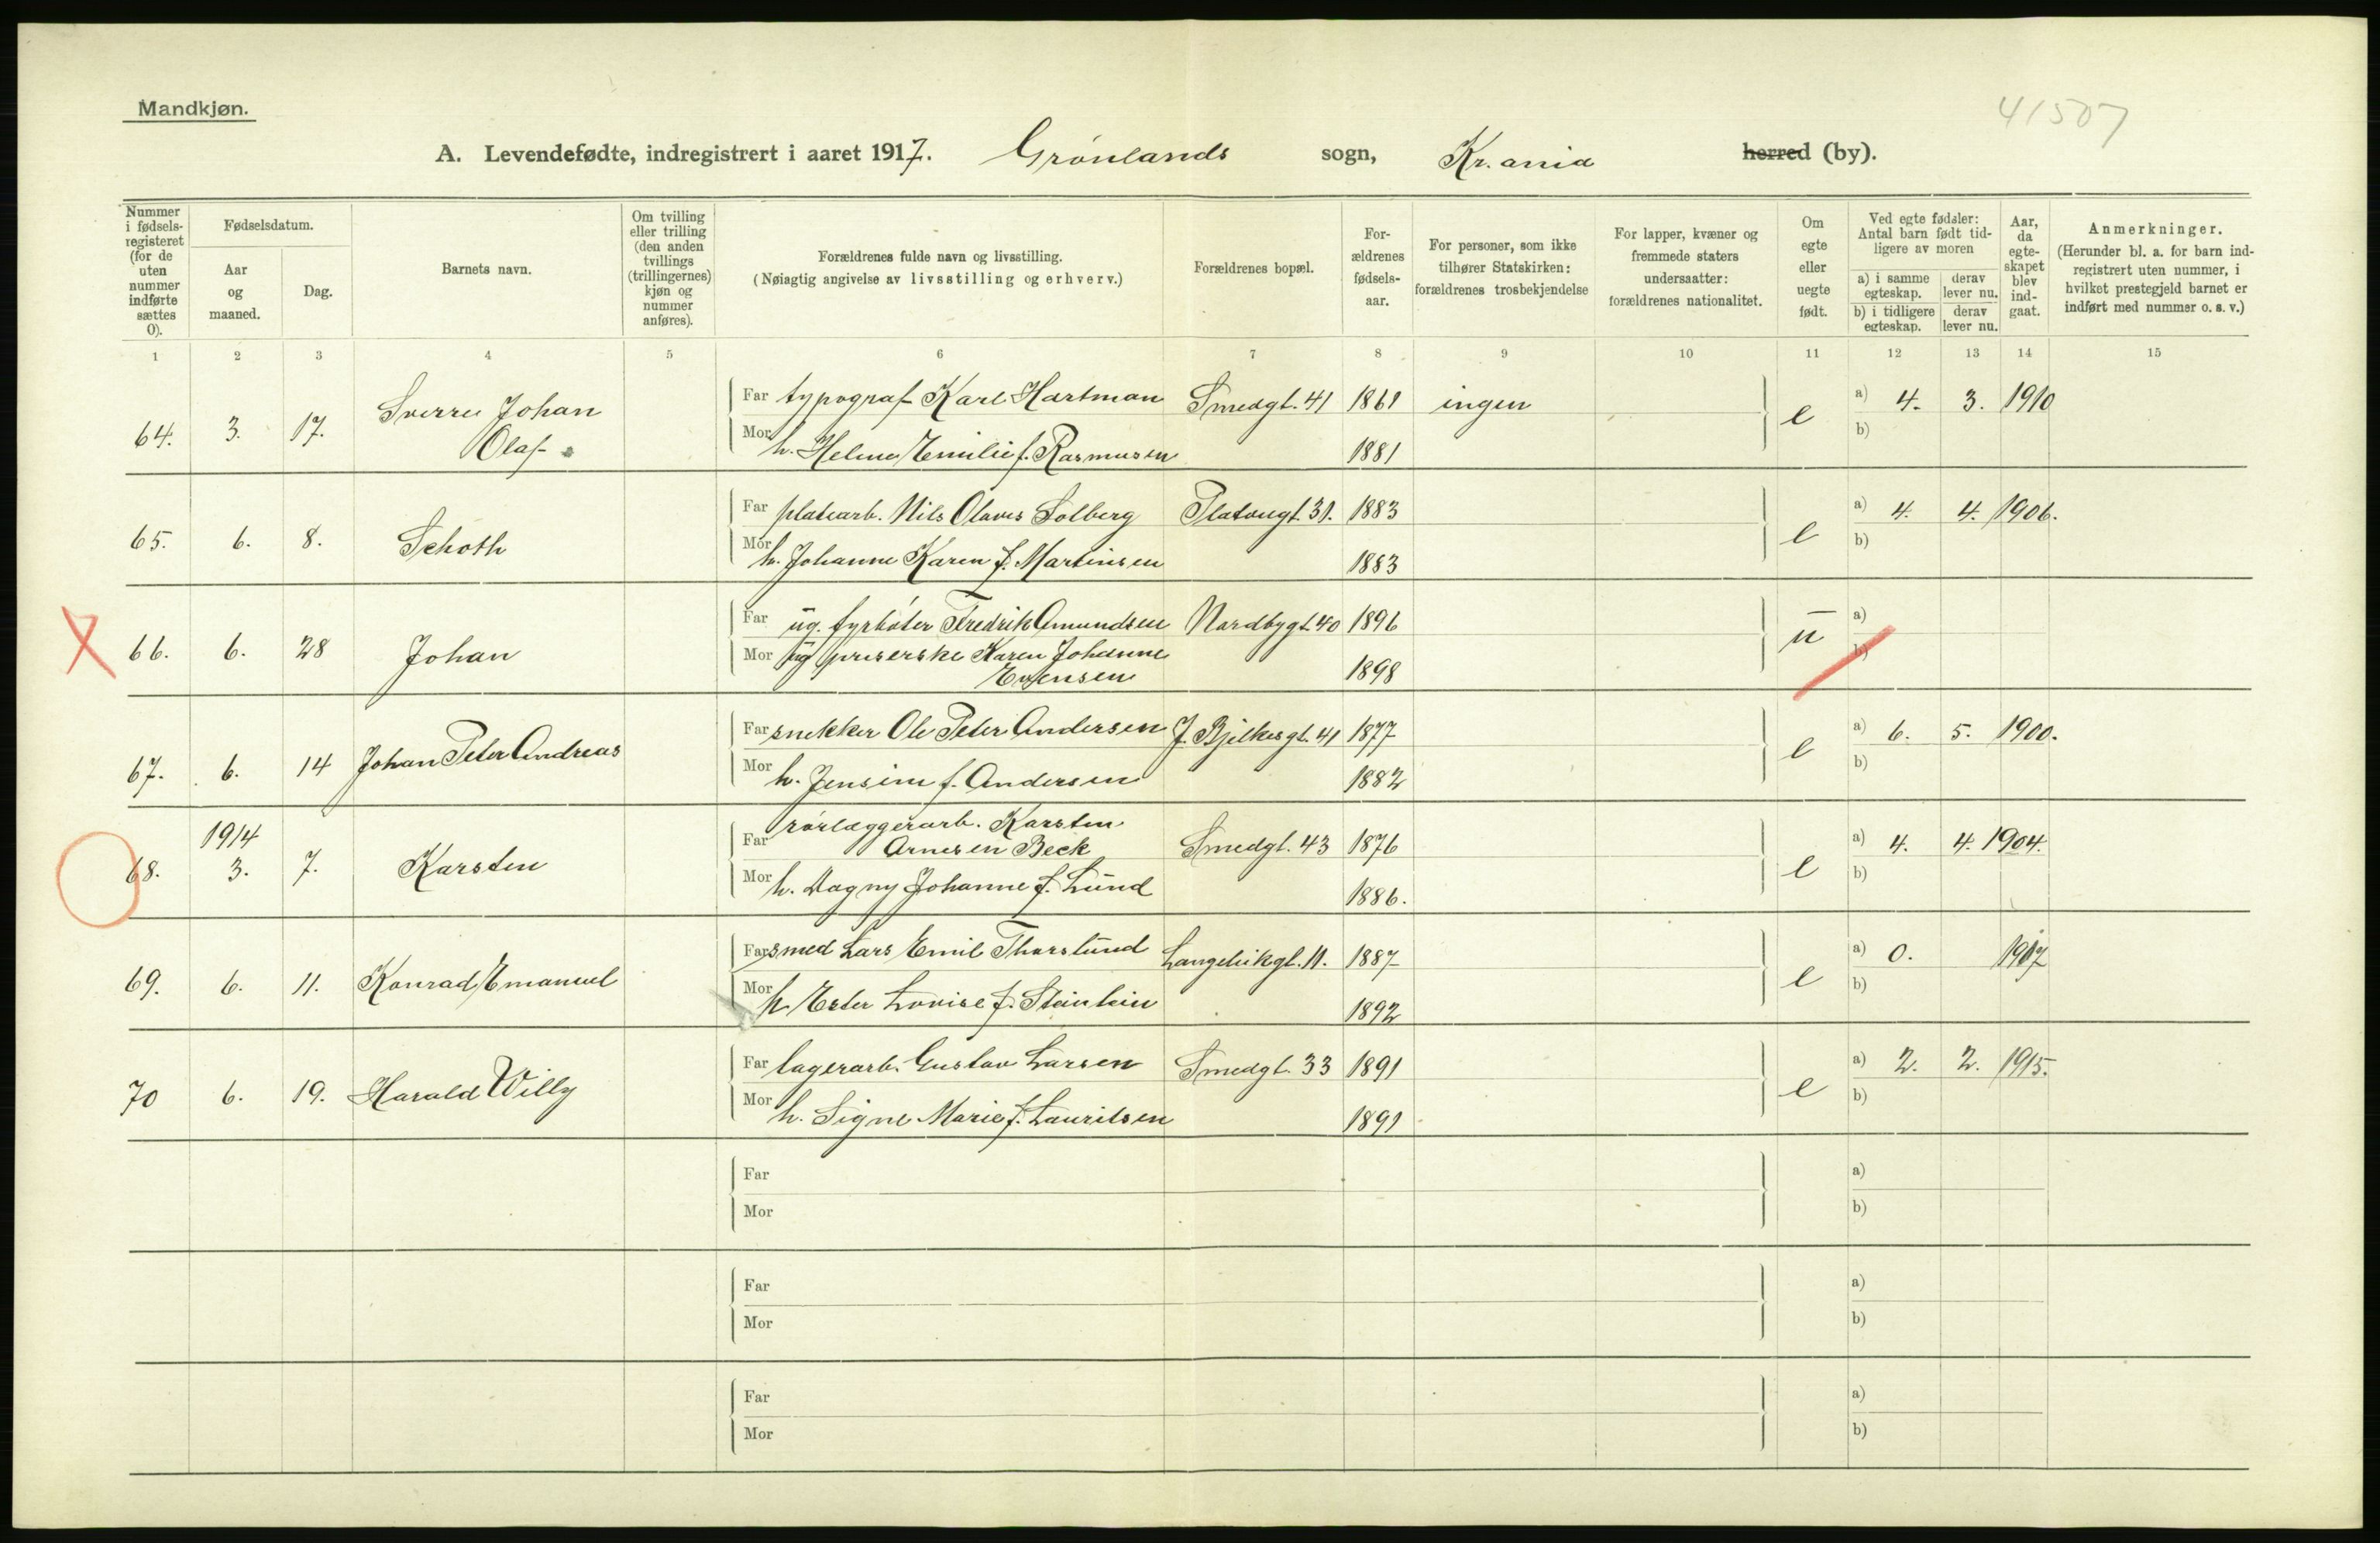 Mandkjøn.
41507
A. Levendefødte, indregistrert i aaret 1917. Grönlands sogn, Kr.ania herred (by).
Nummer i fødsels-registeret (for de uten nummer indførte sættes 0).
Fødselsdatum.
Aar og maaned.
Dag.
Barnets navn.
Om tvilling eller trilling (den anden tvillings (trillingernes) kjøn og nummer anføres).
Forældrenes fulde navn og livsstilling.
(Nøiagtig angivelse av livsstilling og erhverv.)
Forældrenes bopæl.
For-ældrenes fødsels-aar.
For personer, som ikke tilhører Statskirken: forældrenes trosbekjendelse
For lapper, kvæner og fremmede staters undersaatter: forældrenes nationalitet.
Om egte eller uegte født.
Ved egte fødsler: Antal barn født tid-ligere av moren
a) i samme egteskap.
derav lever nu.
b) i tidligere egteskap.
derav lever nu.
Aar, da egte-skapet blev ind-gaat.
Anmerkninger.
(Herunder bl. a. for barn ind-registrert uten nummer, i hvilket prestegjeld barnet er indført med nummer o. s. v.)
1 2 3 4 5 6 7 8 9 10 11 12 13 14 15
64. 3. 17. Sverre Johan Olaf
Far typograf Karl Hartman Smedgt. 41 1861 ingen e a) 4. 3. 1910
Mor h. Helene Emilie f. Rasmusen 1881 b)
65. 6. 8. Schoth
Far platearb. Nils Olaves Solberg Platougt. 31. 1883 e a) 4. 4. 1906.
Mor h. Johanne Karen f. Martinsen 1883 b)
66. 6. 28 Johan
Far ug. fyrböter Fredrik Amundsen Nordbygt. 40 1896 u a)
Mor ug. Karen Johanne Evensen 1898 b)
67. 6. 14 Johan Peter Andreas
Far snekker Ole Peter Andersen J. Bjelkesgt. 41 1877 e a) 6. 5. 1900.
Mor h. Jensine f. Andersen 1882 b)
68. 1914 3. 7. Karsten
Far rörlæggerarb. Karsten Arnesen Beck Smedgt. 43 1876 e a) 4. 4. 1904.
Mor h. Dagny Johanne f. Lund 1886. b)
69. 6. 11. Konrad Emanuel
Far smed Lars Emil Thorslund Langeleikgt. 11. 1887 e a) 0. 1917
Mor h. Ester Lovise f. 1892 b)
70 6. 19. Harald Willy
Far lagerarb. Gustav Larsen Smedgt. 33 1891 e a) 2. 2. 1915.
Mor h. Signe Marie f. Lauritsen 1891 b)
Far a)
Mor b)
Far a)
Mor b)
Far a)
Mor b)